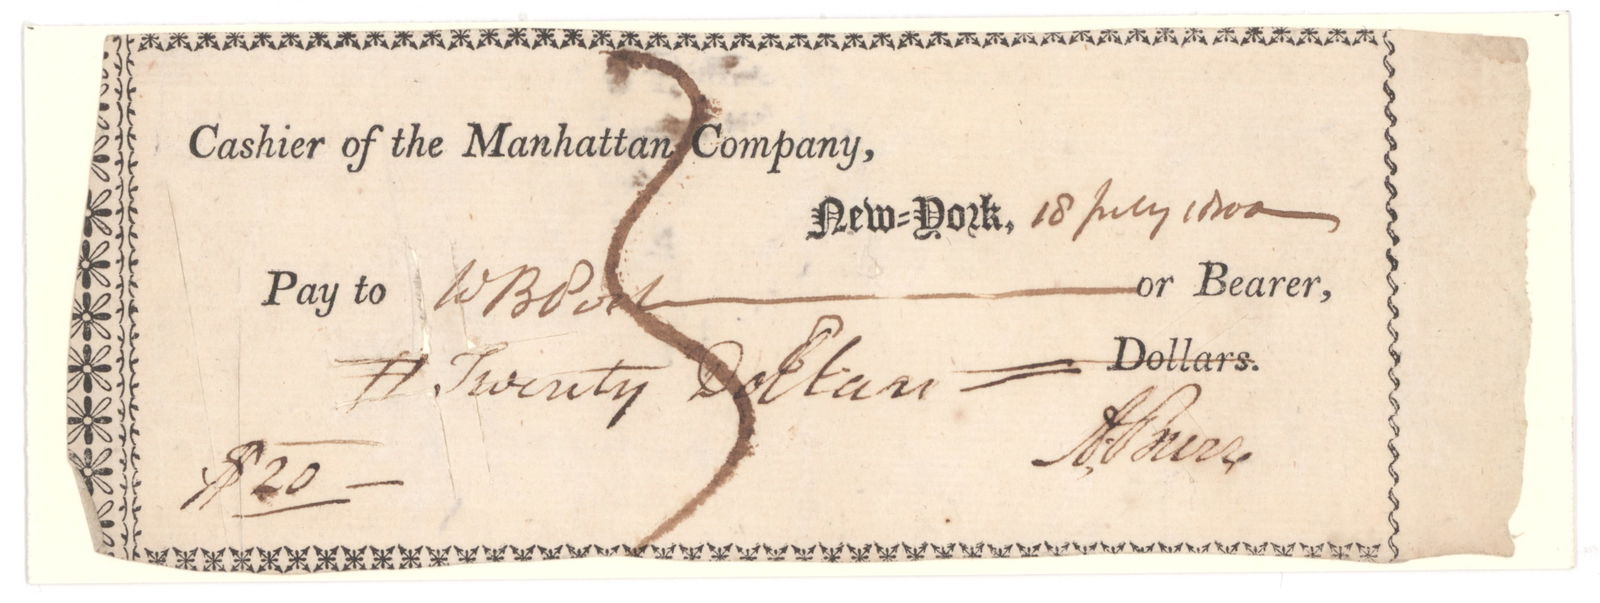 Cashier of the Manhattan Company,
New-York, 18 July 1800
Pay to W B Post or Bearer,
Twenty Dollars Dollars.
$ 20
A, Burr